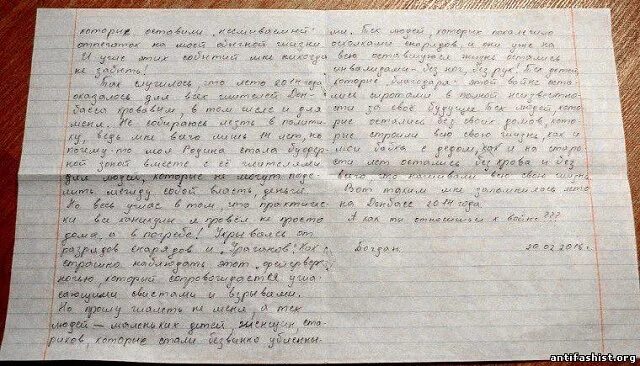 которые оставили несмываемый
отпечаток на моей обычной жизни.
И ужас этих событий мне никогда
не забыть!
Так случилось, что лето 2014 года
оказалось для всех жителей Дон-
басса кровавым, в том числе и для
меня. Не собираюсь лезть в полити-
ку, ведь мне всего лишь 14 лет, но
почему-то моя Родина стала буфер-
ной зоной вместе с её жителями
для людей, которые не могут поде-
лить между собой власть, деньги.
Но весь ужас в том, что практичес-
ки все каникулы я провёл не просто
дома, а в погребе! Укрываясь от
разрядов снарядов и "Ураганов". Как
страшно наблюдать этот фейерверк
ночью, который сопровождается ужа-
сающими свистами и взрывами.
Но прошу жалеть не меня, а тех
людей – маленьких детей, женщин, ста-
риков, которые стали безвинно убиенны-
ми. Тех людей, которых покалечило
осколками снарядов, и они уже на
всю оставшуюся жизнь остались
инвалидами – без ног, без рук. Тех детей,
которые благодаря этой войне оста-
лись сиротами в полной неизвестнос-
ти за своё будущее. Тех людей, кото-
рые остались без своих домов, кото-
рые строили всю свою жизнь, как и
мои бабка с дедом, как и на старос-
ти лет остались без крова и без
всего что наживали всю свою жизнь.
Вот таким мне запомнилось лето
на Донбассе 2014 года.
А как ты относишься к войне???
Богдан.
20.02.2016 г.
antifashist.org